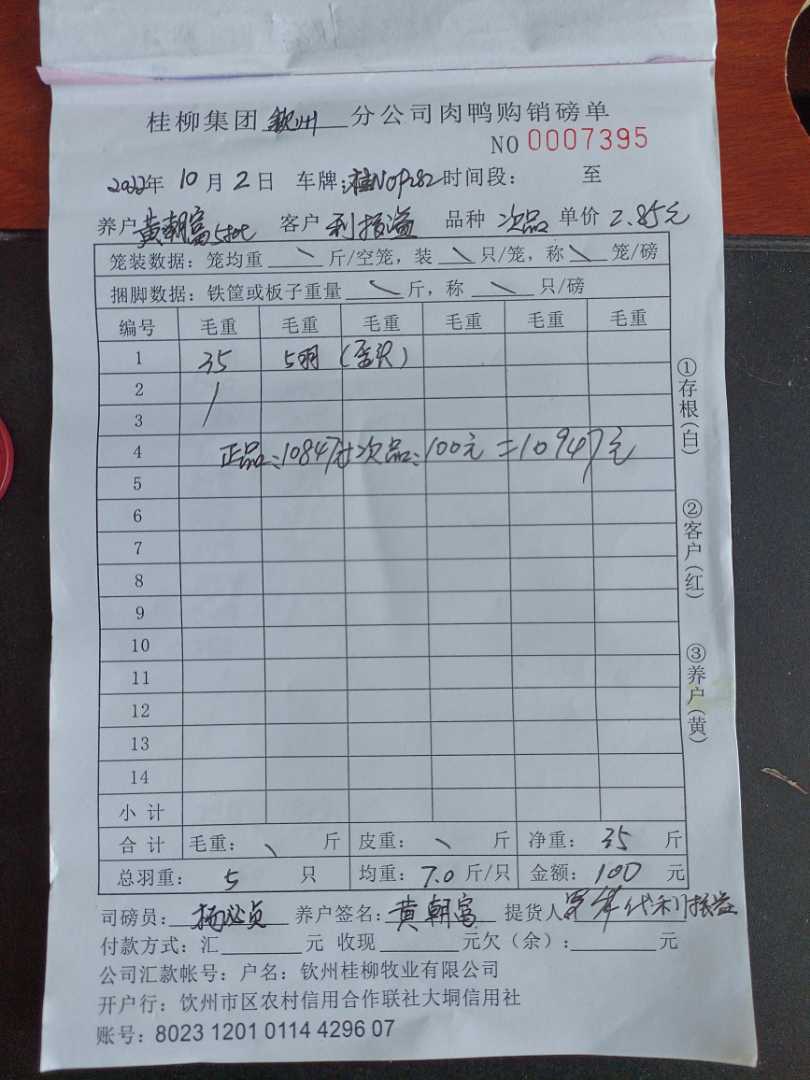 桂柳集团 钦州 分公司肉鸭购销磅单
NO 0007395
2022年 10月2日 车牌:桂NOP282 时间段: 至
养户 黄朝富5批 客户 利振溢 品种 次品 单价 2.85元
笼装数据:笼均重 \ 斤/空笼,装 \ 只/笼,称 \ 笼/磅
捆脚数据:铁筐或板子重量 \ 斤,称 \ 只/磅
编号 毛重 毛重 毛重 毛重 毛重 毛重
1 35 5羽
2 /
3
4 正品:10847 次品:100元=10947元
5
6
7
8
9
10
11
12
13
14
小计
合计 毛重: \ 斤 皮重: \ 斤 净重: 35 斤
总羽重: 5 只 均重: 7.0 斤/只 金额: 100 元
司磅员: 养户签名: 黄朝富 提货人 代利振溢
付款方式:汇 元 收现 元欠(余): 元
公司汇款帐号:户名:钦州桂柳牧业有限公司
开户行:饮州市区农村信用合作联社大垌信用社
账号:8023 1201 0114 4296 07
①存根(白)
②客户(红)
③养户(黄)